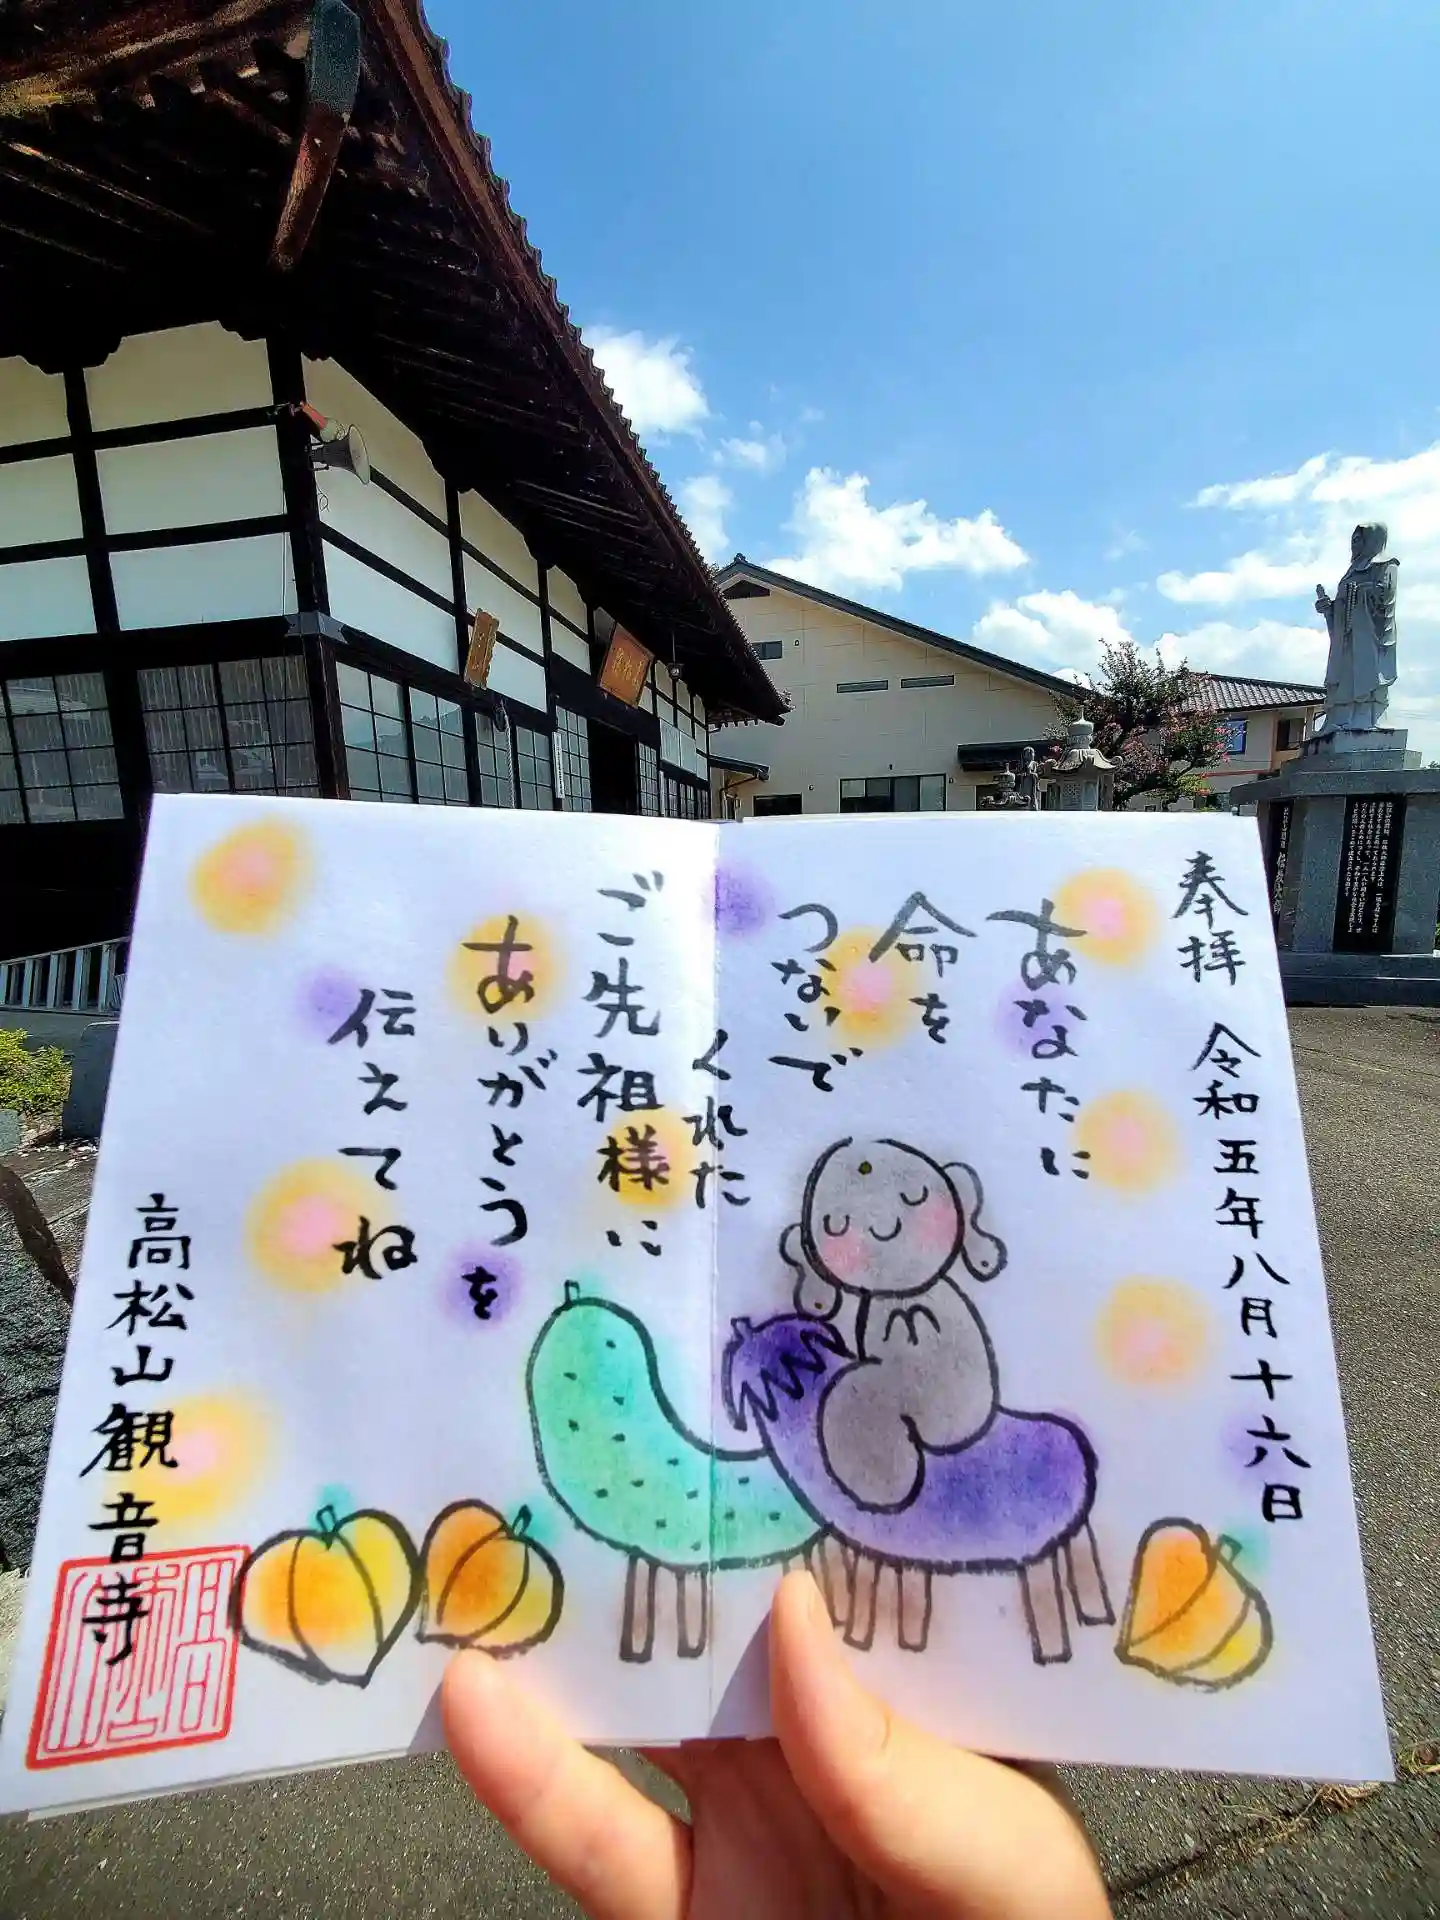 奉拝 令和五年八月十六日
あなたに
命を
つないで
くれた
ご先祖様に
ありがとうを
伝えてね
高松山観音寺